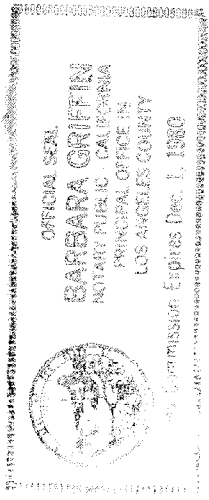 OFFICIAL SEAL
BARBARA GRIFFIN
NOTARY PUBLIC CALIFORNIA
PRINCIPAL OFFICE IN
LOS ANGELES COUNTY
Commission Expires Dec. 1, 1980